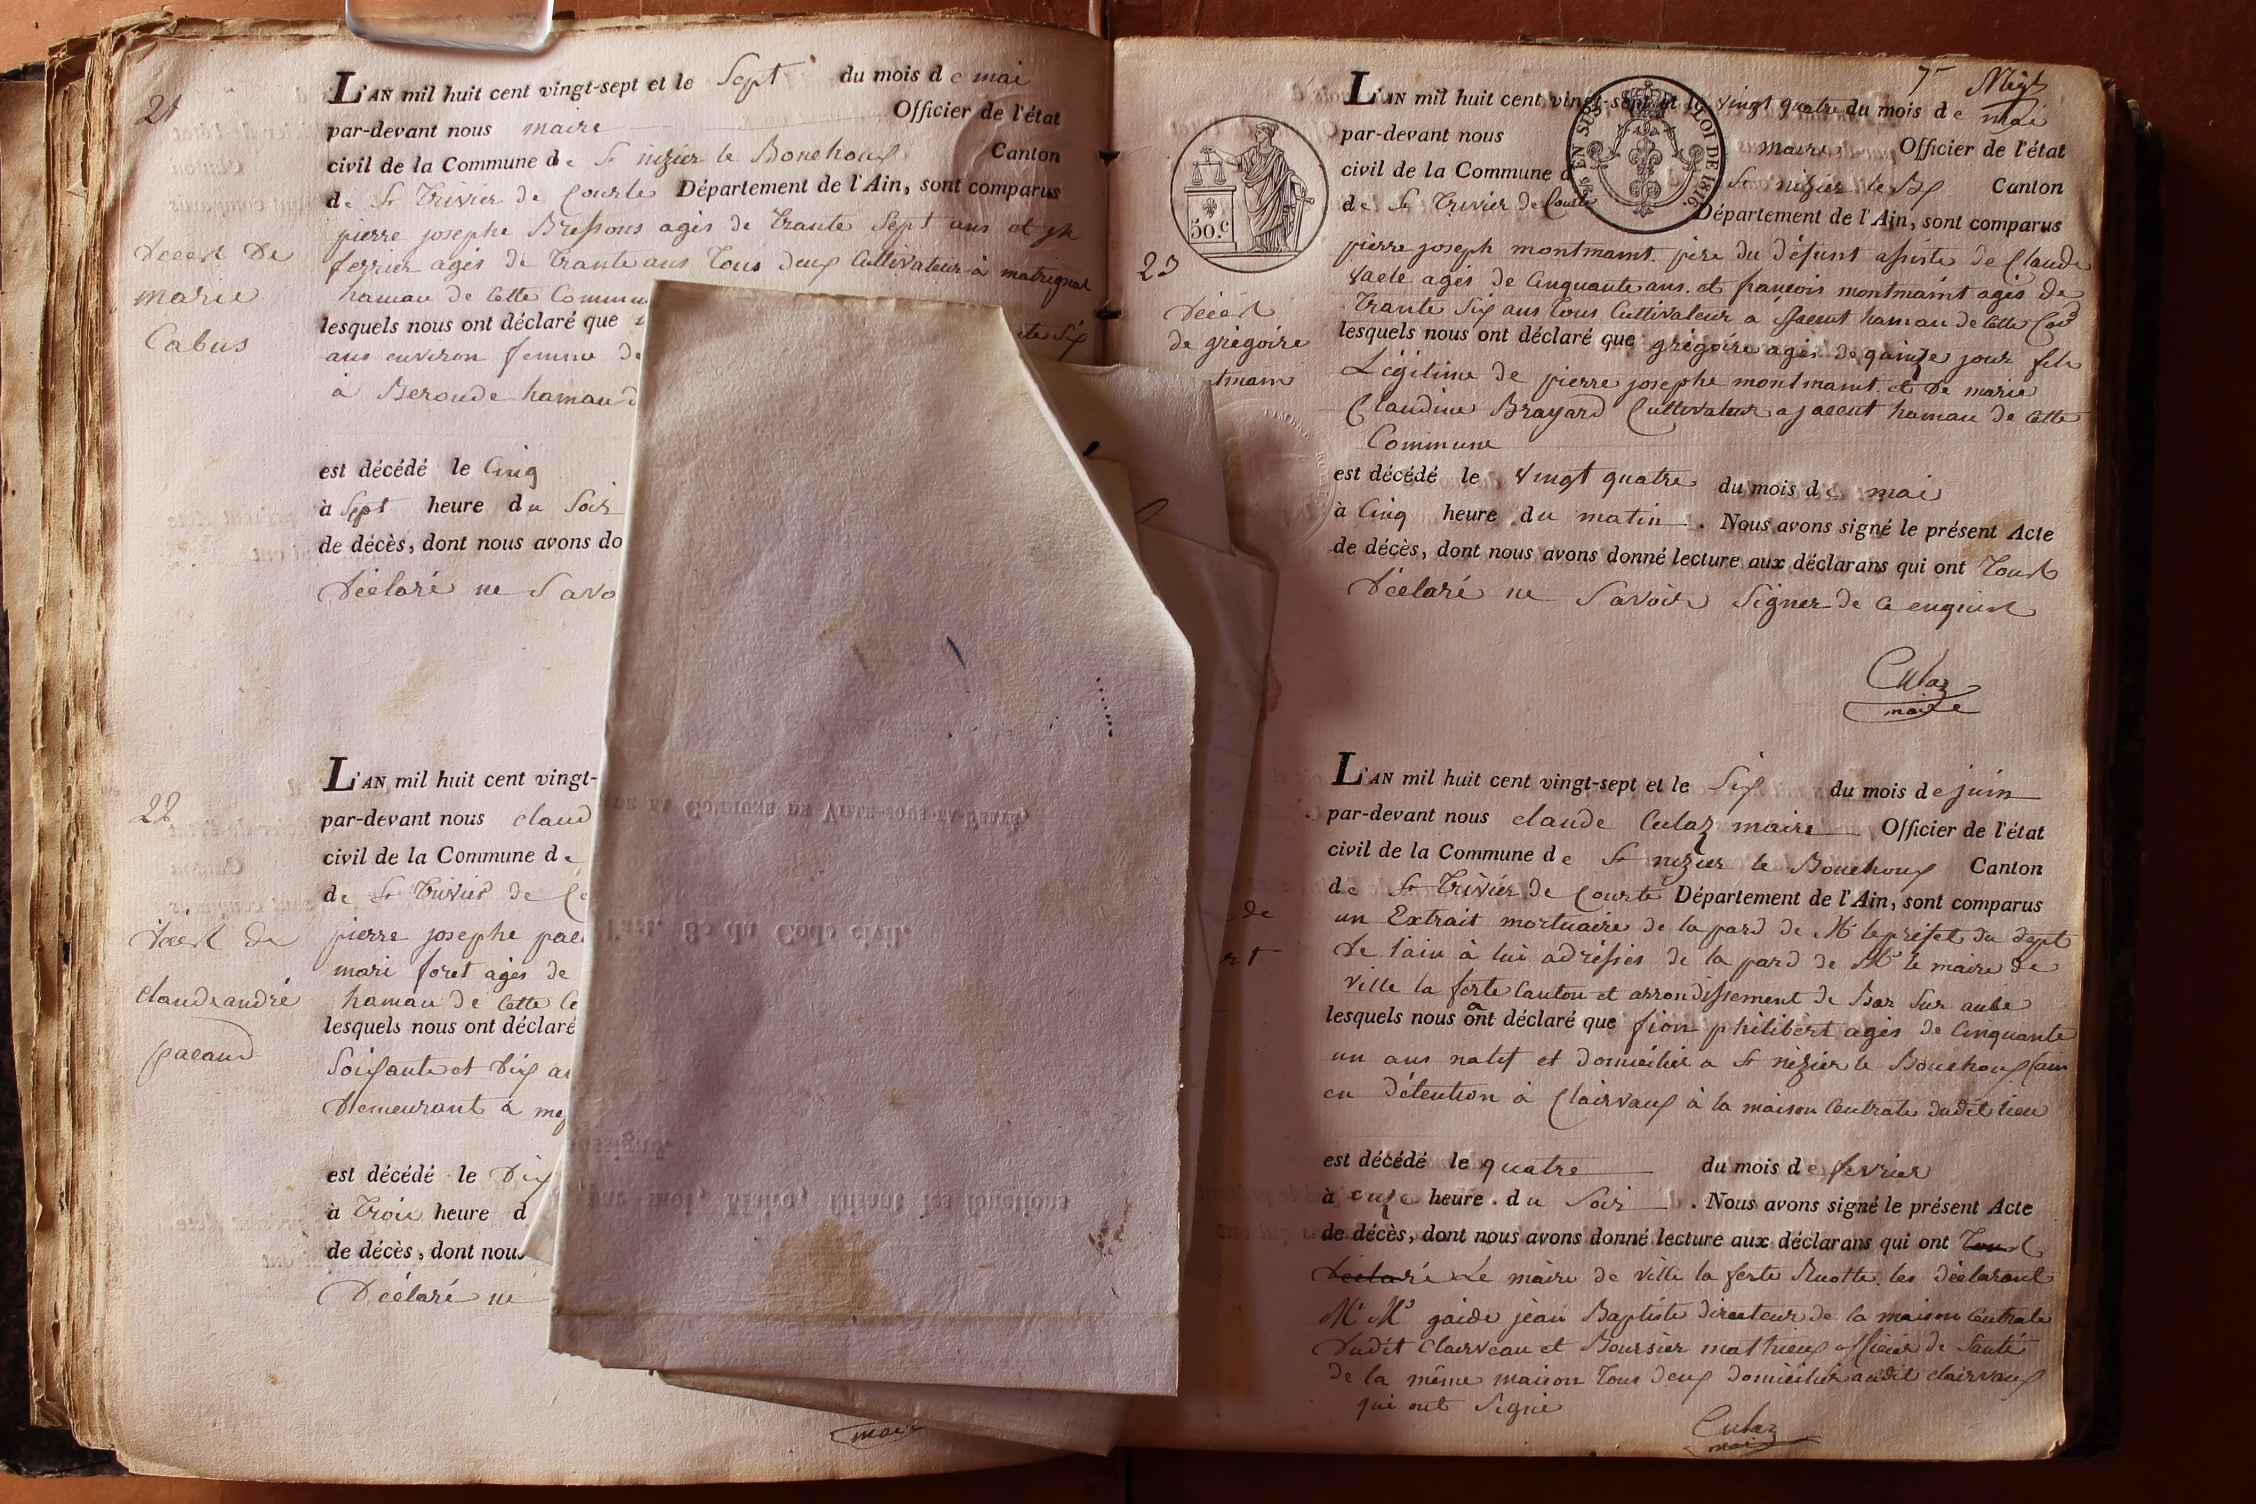 21
L'AN mil huit cent vingt-sept et le Sept du mois de mai
par-devant nous maire Officier de l'état
civil de la Commune de St nizier le Bouchoux Canton
de St Trivier de Courte Département de l'Ain, sont comparus
pierre josephe Bressous agés de trante Sept ans et jh
ferrier agés de trante ans Tous deux Cultivateur à matrignat
hamau de Cette Commun
lesquels nous ont déclaré que
te Six
ans environ femme de
à Beroude hamau d
Décest De
marie
Cabus
est décédé le Cinq
à Sept heure du Soir
de décès, dont nous avons do
Déclaré ne Savo
22
L'AN mil huit cent vingt-
par-devant nous claud
civil de la Commune de
de St Trivier de Co
pierre josephe pac
mari foret agés de
hamau de Cette Co
lesquels nous ont déclaré
Soixante et Dix an
Demeurant à
Décest de
Claude andré
pacaud
est décédé le Dix
à Trois heure d
de décès, dont nous
Déclaré ne
maire
DE LA COMMUNE DE VILLE-SOUS-LA-FERTÉ,
l'art. 80 du Code civil.
ssigné.
par moi, Maire, faisant les fonctions
7e
L'AN mil huit cent vingt-sept et le vingt quatre du mois de mai
par-devant nous maire Officier de l'état
civil de la Commune d St nizier le Bx Canton
de St Trivier de Courte Département de l'Ain, sont comparus
EN SUS
LOI DE 1816.
50.c
23
pierre joseph montmamt père du défunt assisté de Claude
agés de Cinquante ans. et françois montmamt agés de
Trante Six ans tous Cultivateur a jacent hamau de Cette Con
lesquels nous ont déclaré que grégoire agés de quinze jour fils
Légitime de pierre josephe montmamt et De marie
Claudine Brayard Cultivateur a jacent hamau de Cette
Commune
Décest
de grégoire
tmam
est décédé le vingt quatre du mois de mai
à Cinq heure du matin. Nous avons signé le présent Acte
de décès, dont nous avons donné lecture aux déclarans qui ont Tous
Déclaré ne Savoir Signer de Ce enquist
Culaz
maire
L'AN mil huit cent vingt-sept et le Six du mois de juin
par-devant nous claude Culaz maire Officier de l'état
civil de la Commune de St nizier le Bouchoux Canton
de St Trivier de Courte Département de l'Ain, sont comparus
un Extrait mortuaire de la pard de Mr le préfet du dept
de l'ain à lui adréssés de la pard de Mr le maire de
Ville la ferte Canton et arrondissement de Bar Sur aube
lesquels nous ont déclaré que fion philibert agés de Cinquante
un ans natif et domicilié a St nizier le Bouchoux (ain
en Détention à Clairvaux à la maison Centrale dudit lieu
de
rt
est décédé le quatre du mois de fevrier
à onze heure du Soir. Nous avons signé le présent Acte
de décès, dont nous avons donné lecture aux déclarans qui ont Tous
Déclaré Le maire de Ville la ferte Ruotte. les déclarant
Mr Mr gaide jean Baptiste directeur de la maison Centrale
Dudit Clairveau et Boursier mathieux officier de Santé
de la même maison Tous deux domicilié audit clairvaux
qui ont Signé
Culaz
maire